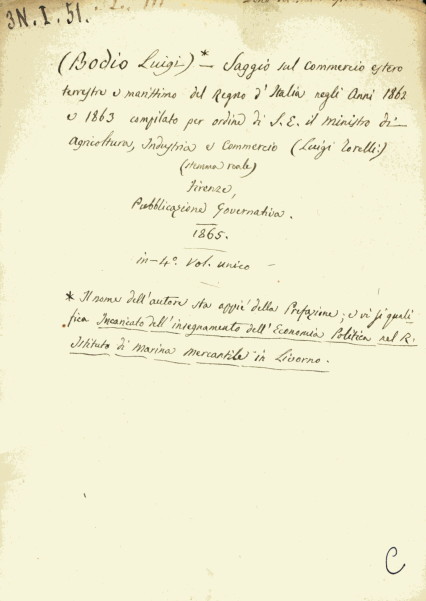 3N.I.51.
(Bodio Luigi)* — Saggio sul commercio estero
terrestre e marittimo del Regno d'Italia negli Anni 1862
e 1863 compilato per ordine di S.E. il Ministro di
Agricoltura, Industria e Commercio (Luigi Torelli)
(stemma reale)
Firenze,
Pubblicazione Governativa.
1865.
in-4º. Vol. unico
* Il nome dell'autore sta appiè della Prefazione; e vi si quali
fica Incaricato dell'insegnamento dell'Economia Politica nel R.
Istituto di Marina Mercantile in Livorno.
C